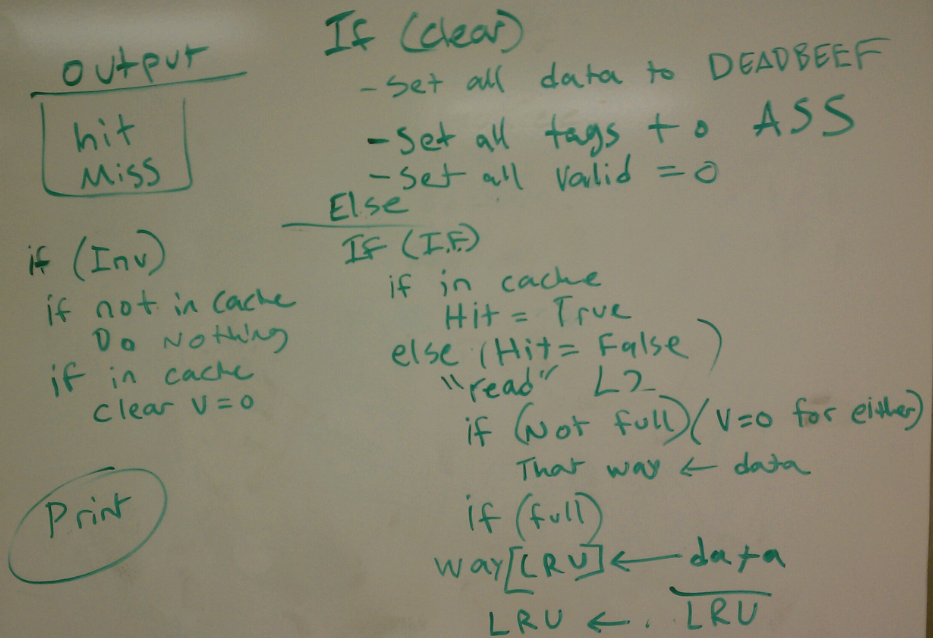 output
hit
Miss
if (Inv)
if not in cache
Do Nothing
if in cache
clear V=0
Print
If (clear)
-Set all data to DEADBEEF
-Set all tags to ASS
-Set all Valid = 0
Else
If (I.F.)
if in cache
Hit = True
else (Hit = False)
"read" L2
if (Not full) (V=0 for either)
That way ← data
if (full)
way[LRU] ← data
LRU ← . L̅R̅U̅